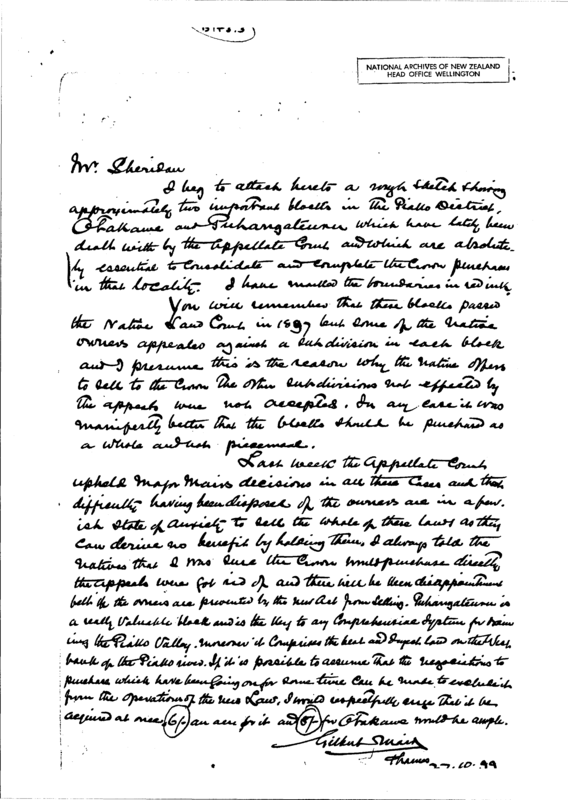 NATIONAL ARCHIVES OF NEW ZEALAND
HEAD OFFICE WELLINGTON
Mr. Sheridan
I beg to attach hereto a rough sketch showing
approximately two important blocks in the Piako District,
Otakawe and Puhangateuru which have lately been
dealt with by the Appellate Court and which are absolute-
ly essential to consolidate and complete the Crown purchases
in that locality. I have marked the boundaries in red ink.
You will remember that these blocks passed
the Native Land Court in 1897 but some of the Native
owners appealed against a subdivision in each block
and I presume this is the reason why the native offers
to sell to the Crown the other subdivisions not effected by
the appeals were not accepted. In any case it was
manifestly better that the blocks should be purchased as
a whole and not piecemeal.
Last week the Appellate Court
upheld Major Mairs decisions in all these cases and that
difficulty having been disposed of the owners are in a fever-
ish state of anxiety to sell the whole of these lands as they
can derive no benefit by holding them, I always told the
natives that I was sure the Crown would purchase directly
the appeals were got rid of and there will be keen disappointment
both if the owners are prevented by the new Act from selling. Puhangateuru is
a really valuable block and is the key to any comprehensive system for drain
ing the Piako Valley. Moreover it comprises the best and driest land on the West
bank of the Piako river. If it is possible to assume that the negociations to
purchase which have been going on for some time can be made to exclude it
from the operations of the new Law, I would respectfully urge that it be
acquired at once, 6/- an acre for it and 5/- for Otakawe would be ample.
Gilbert Mair
Thames 27.10.99